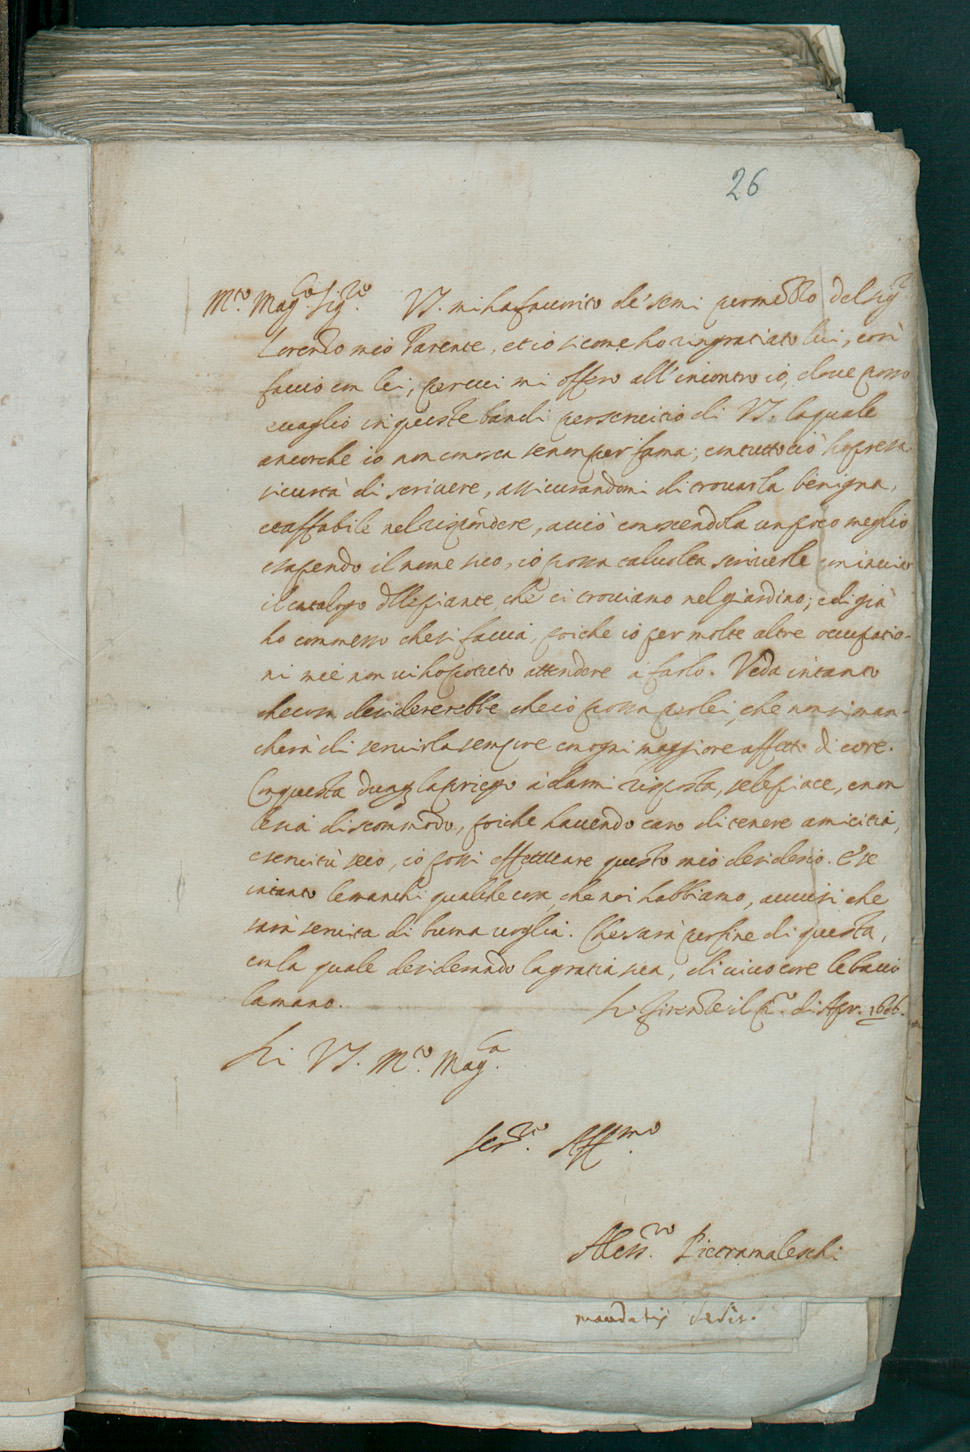 26
M.to Mag.co Sig.re VS. mi ha favorito de' semi per mezzo del Sig.r
Lorenzo mio Parente, et io si come ho ringratiato lui, così
faccio con lei, per cui mi offero all'incontro io, dove posso
e vaglio in queste bandi per servitio di VS. la quale
ancorche io non conosca se non per fama, contuttociò ho presa
sicurtà di scrivere, assicurandomi di trovarla benigna,
et affabile nel rispondere, acciò conoscendola un poco meglio
e sapendo il nome suo, io possa talvolta scriverle con inviar
il catalogo delle piante, che ci troviamo nel giardino; e di già
ho commesso che si faccia, poiche io per molte altre occupatio-
ni mie non vi ho potuto attendere a farlo. Veda intanto
che cosa desidererebbe che io possa per lei, che non si man-
cherà di servirla sempre con ogni maggiore affetto di core.
Con questa dunq la priego a darmi risposta, se le piace, e non
le sia di scommodo, poiche havendo caro di tenere amicitia,
e servitù seco, io possi effettuare questo mio desiderio. E se
intanto le manchi qualche cosa, che noi habbiamo, avvisi che
sarà servita di buona voglia. Che sarà per fine di questa,
con la quale desiderando la gratia sua, di vivo core le bacio
la mano. Di Firenze il p.o di Apr. 1606.
Di VS. M.to Mag.ca
Ser.re Aff.mo
Aless.ro Pietramaleschi
mandatis